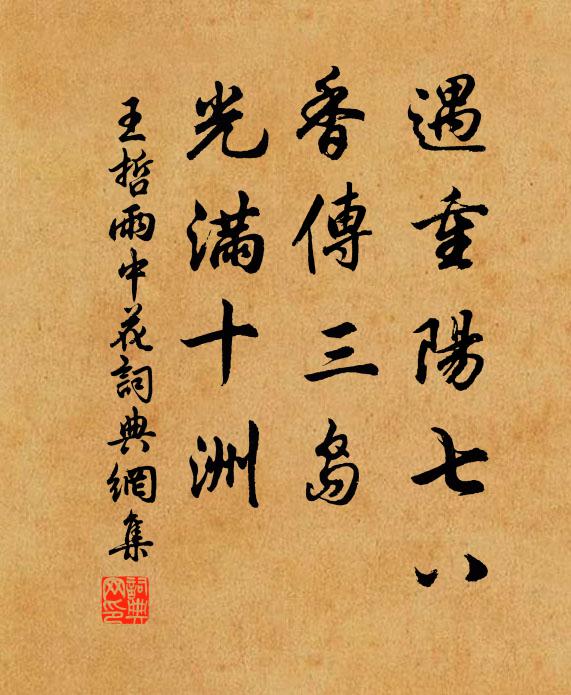 遇重陽七八
香傳三島
光滿十洲
王哲雨中花詞典網集
詞典网印